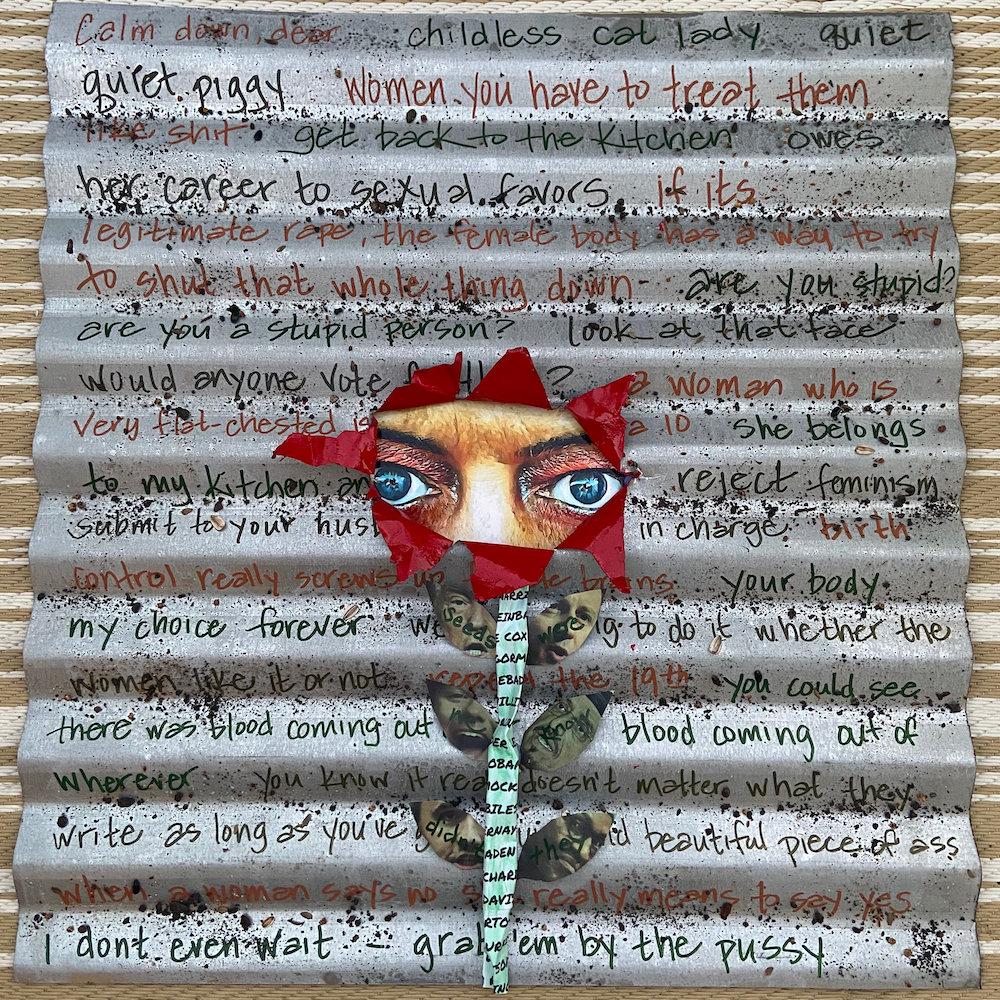 Calm down, dear childless cat lady quiet
quiet piggy Women. you have to treat them
like shit get back to the kitchen owes
her career to sexual favors if its
legitimate rape, the female body has a way to try
to shut that whole thing down are you stupid?
are you a stupid person? look at that face
would anyone vote ? a woman who is
very flat-chested is a 10 she belongs
to my kitchen an reject feminism
submit to your hus in charge. birth
control really screws brains. your body
my choice forever we to do it whether the
women like it or not the 19th you could see
there was blood coming out blood coming out of
wherever you know it rea doesn't matter what they
write as long as you've beautiful piece of ass
when a woman says no she really means to say yes
I dont even wait - grab em by the pussy
Seeds were
know
didn't they
EINBA
COX
GORM
EBAD
OBAM
OCK
BILES
ERNAY
ADEN
CHAR
DAVI
RTO